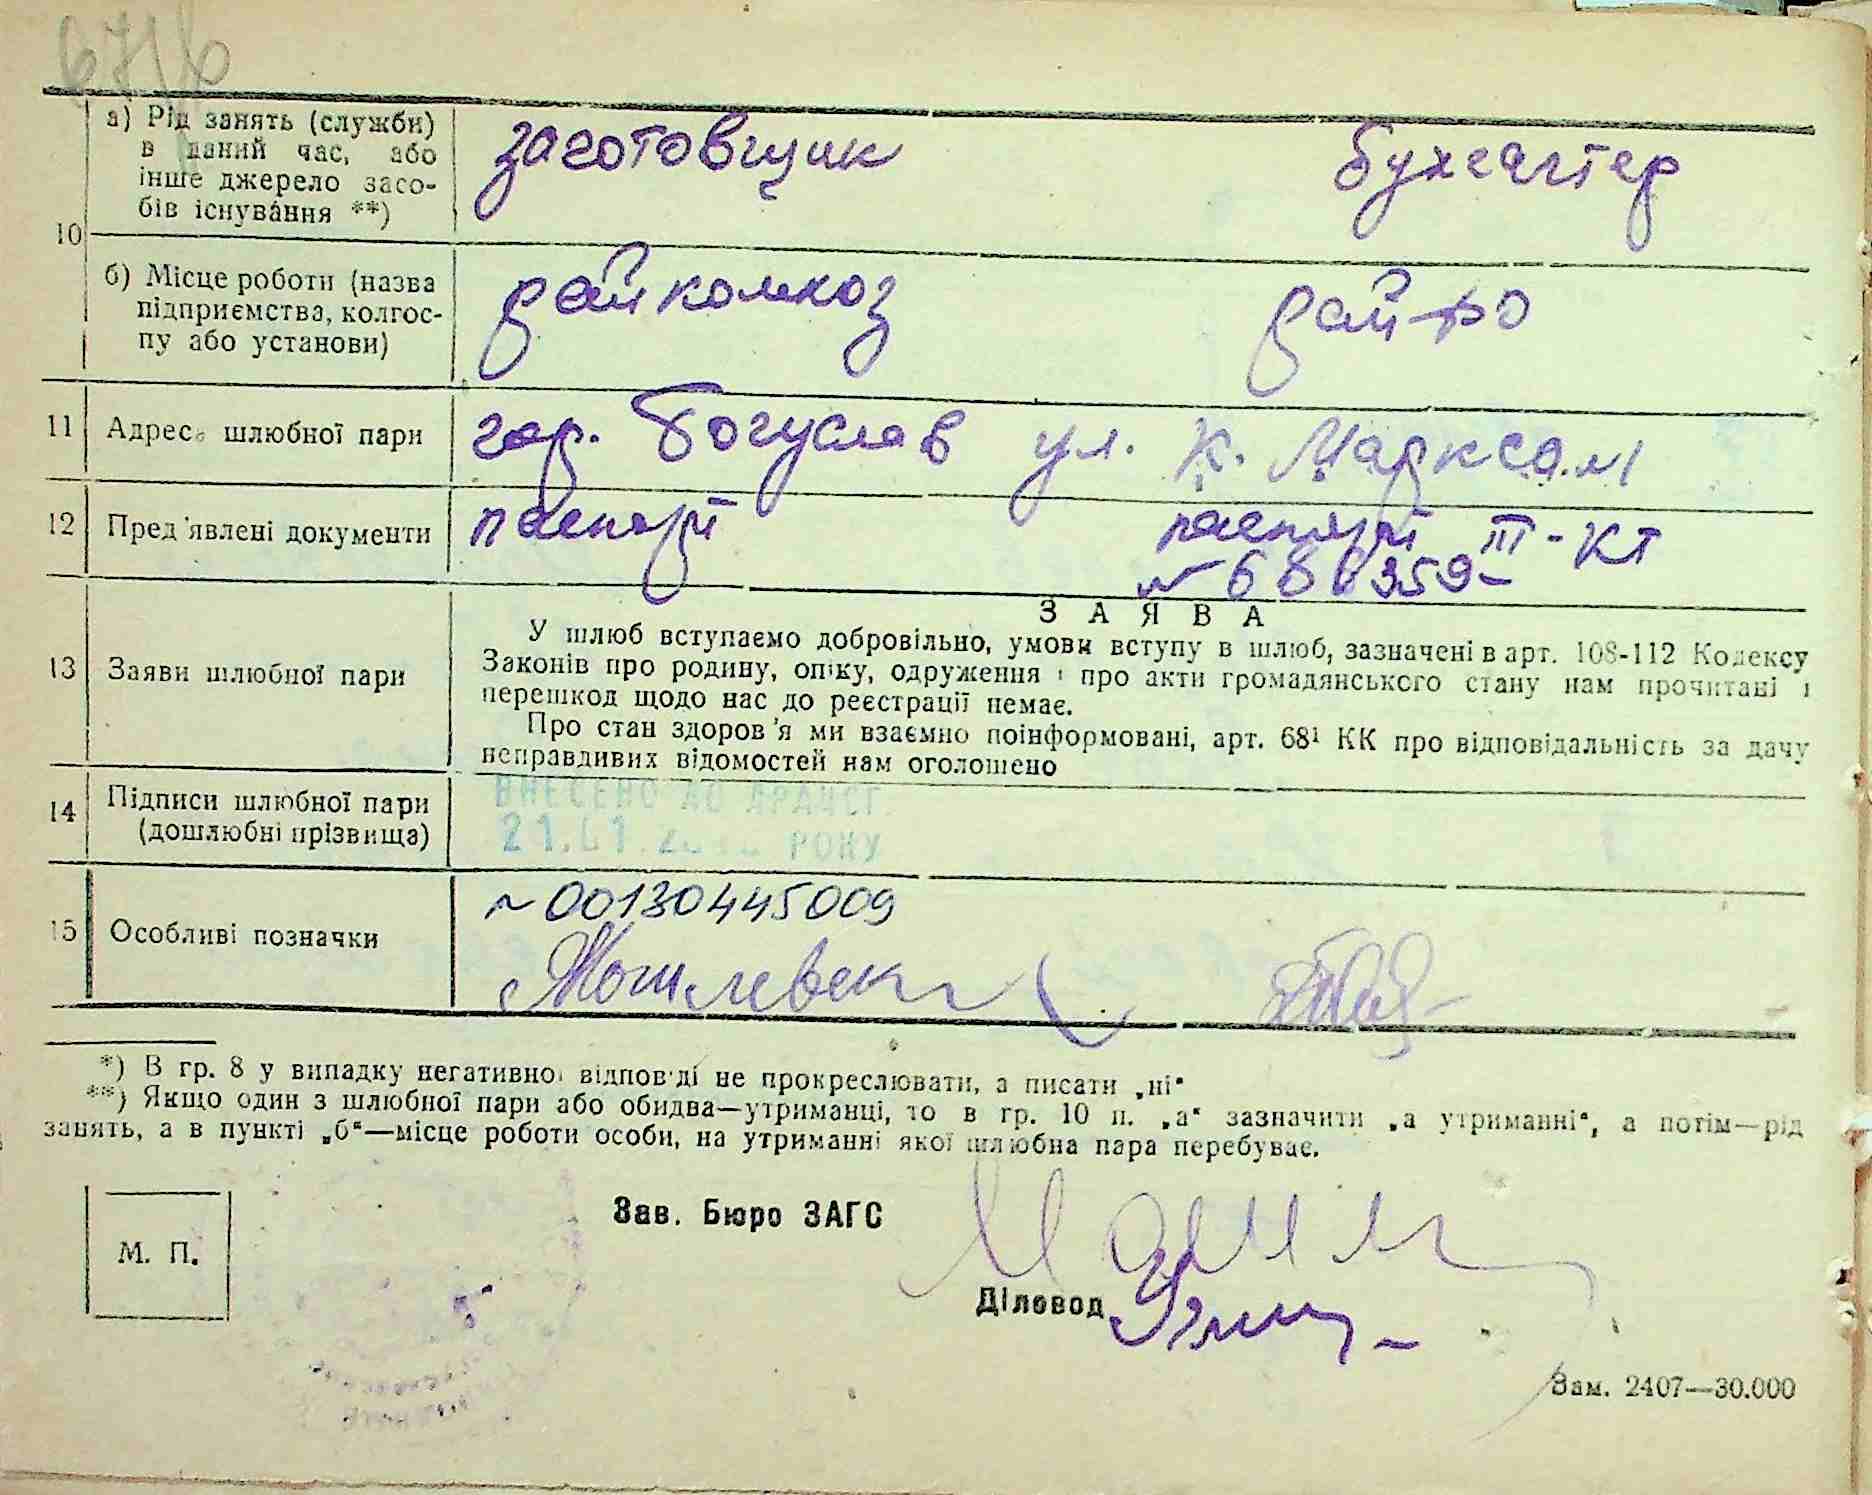 67/6
а) Рід занять (служби)
в даний час, або
інше джерело засо-
бів існування **)
заготовщик бухгалтер
10
б) Місце роботи (назва
підприємства, колгос-
пу або установи)
райкомхоз райфо
11 Адреса шлюбної пари гор. Богуслав ул. К. Маркса
12 Пред'явлені документи паспорт паспорт III-КТ
№ 686359
З А Я В А
13 Заяви шлюбної пари
У шлюб вступаємо добровільно, умови вступу в шлюб, зазначені в арт. 108-112 Кодексу
Законів про родину, опіку, одруження і про акти громадянського стану нам прочитані і
перешкод щодо нас до реєстрації немає.
Про стан здоров'я ми взаємно поінформовані, арт. 68¹ КК про відповідальність за дачу
неправдивих відомостей нам оголошено
14 Підписи шлюбної пари
(дошлюбні прізвища)
ВНЕСЕНО ДО ДРАЦСГ
21.01. РОКУ
№ 00130445009
15 Особливі позначки
*) В гр. 8 у випадку негативної відповіді не прокреслювати, а писати „ні“
**) Якщо один з шлюбної пари або обидва—утриманці, то в гр. 10 п. „а“ зазначити „а утриманні“, а потім—рід
занять, а в пункті „б“—місце роботи особи, на утриманні якої шлюбна пара перебуває.
Зав. Бюро ЗАГС
М. П.
Діловод
Зам. 2407—30.000